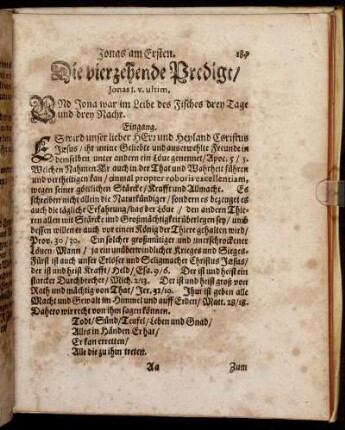 Jonas am Ersten.
Die vierzehende Predigt/
Jonas 1. v. ultim.
VNd Jona war im Leibe des Fisches drey Tage
und drey Nacht.
Eingang.
ES wird unser lieber HErr und Heyland Christus
Jesus/ ihr meine Geliebte und auserwehlte Freunde in
demselben unter andern ein Löue genennet/ Apoc. 5/5.
Welchen Nahmen Er auch in der That und Wahrheit führen
und vertheidigen kan/ einmal propter roboris excellentiam,
wegen seiner göttlichen Stärcke/ Krafft und Allmacht. Es
schreiben nicht allein die Naturkündiger/ sondern es bezeuget es
auch die tägliche Erfahrung/ das der Löue/ den andern Thie-
ren allen an Stärck und Großmächtigkeit überlegen sey/ umb
dessen willen er auch vor einen König der Thiere gehalten wird/
Prov. 30/30. Ein solcher großmütiger und unerschrockener
Löuen-Mann/ ja ein unüberwindlicher Krieges und Sieges-
Fürst ist auch unser Erlöser und Seligmacher Christus Jesus/
der ist und heist Krafft/ Held/ Esa. 9/6. Der ist und heist ein
starcker Durchbrecher/ Mich. 2/13. Der ist und heist groß von
Rath und mächtig von That/ Jer. 32/19. Ihm ist geben alle
Macht und Gewalt im Himmel und auff Erden/ Matt. 28/18.
Dahero wir recht von ihm sagen können.
Todt/ Sünd/ Teufel/ Leben und Gnad/
Alls in Händen Er hat/
Er kan erretten/
Alle die zu ihm treten.
Aa Zum